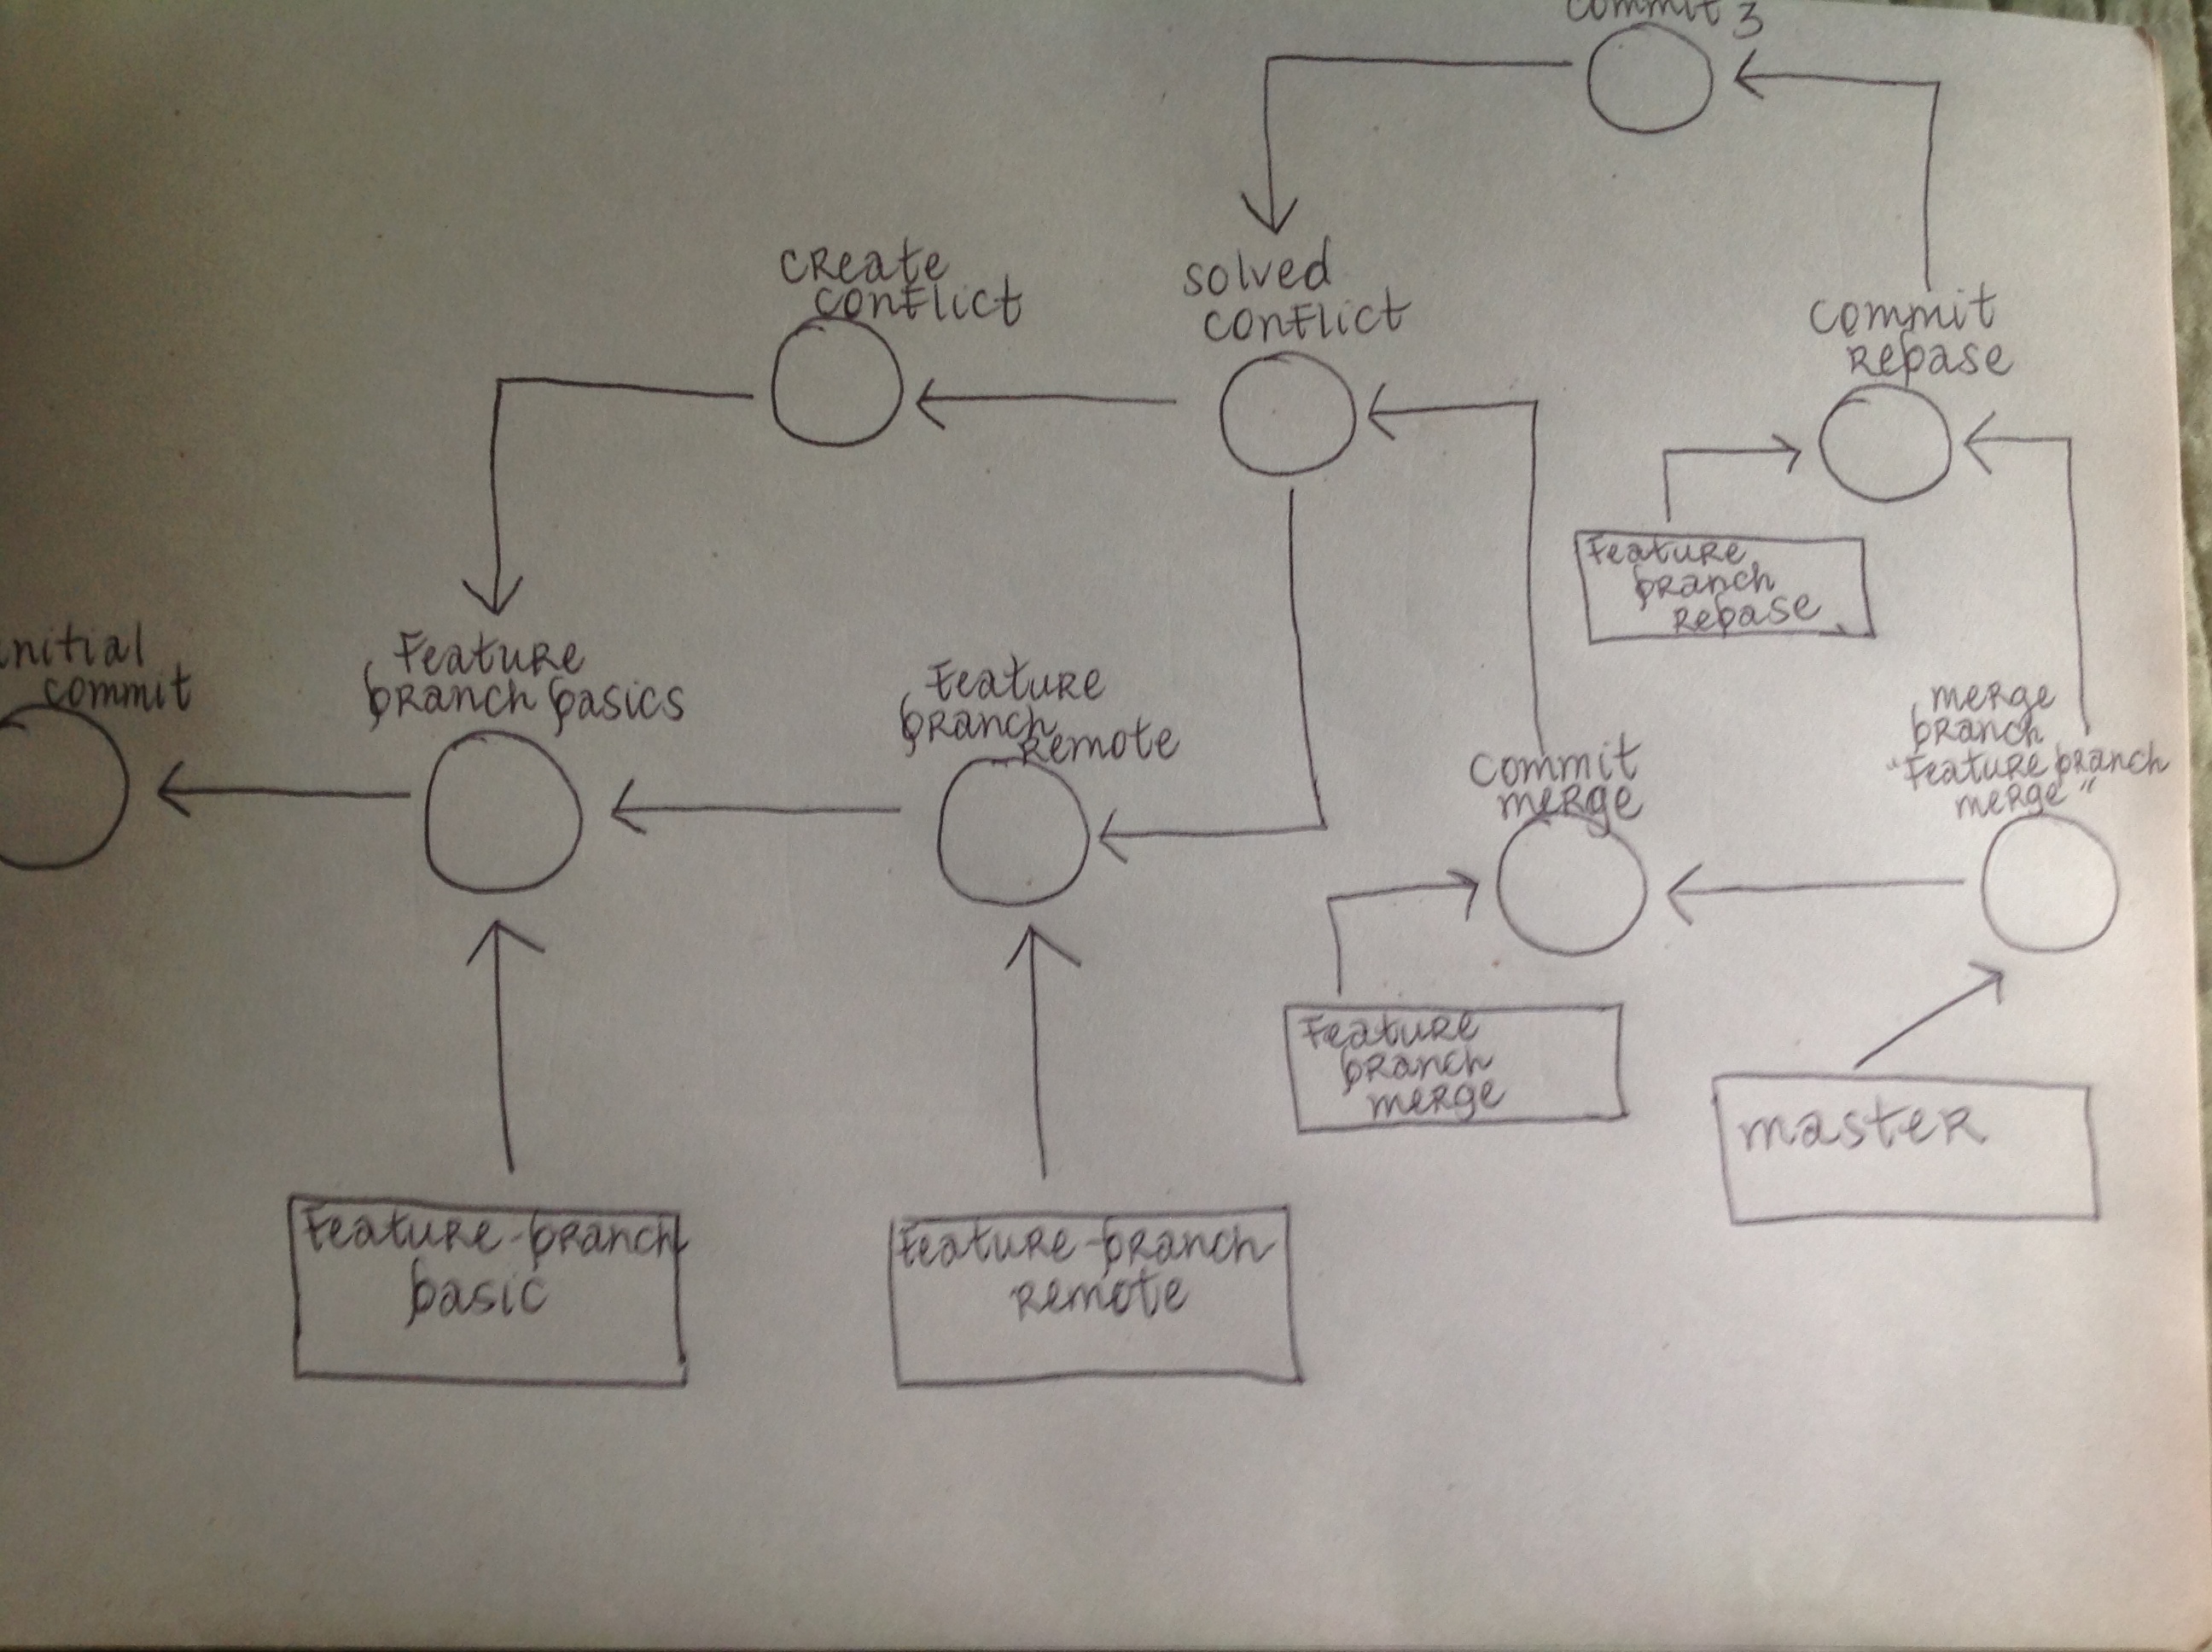 commit 3
create
conflict
solved
conflict
commit
rebase
Feature
branch
rebase
initial
commit
Feature
branch basics
Feature
branch
remote
commit
merge
merge
branch
"Feature branch
merge"
Feature
branch
merge
master
Feature-branch
basic
Feature-branch
remote